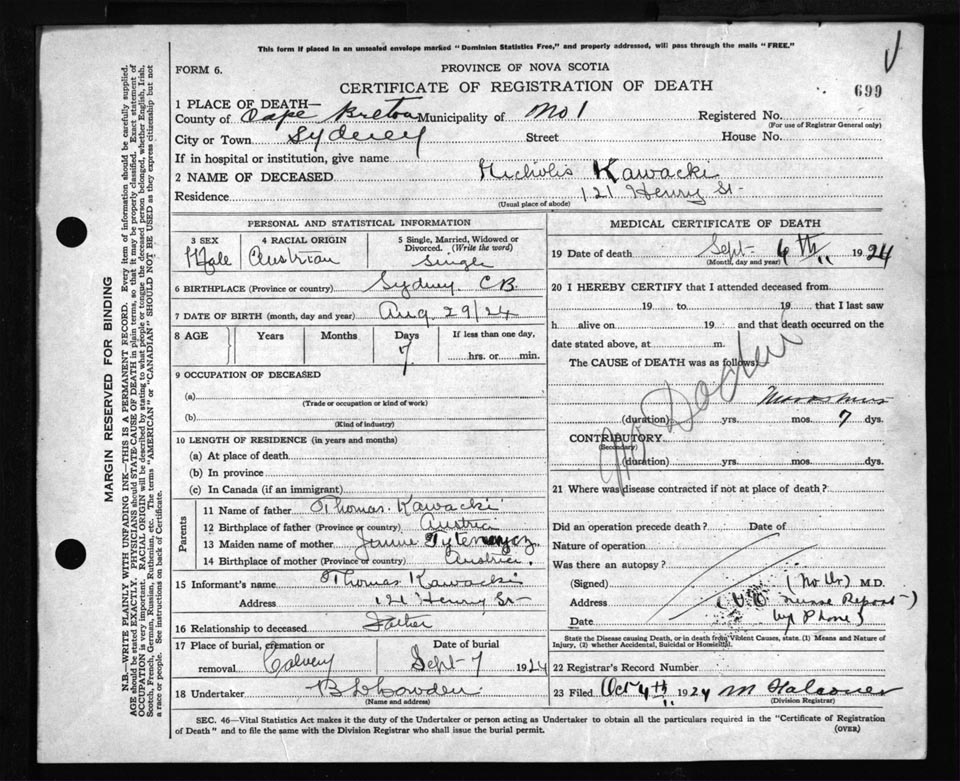 This form if placed in an unsealed envelope marked "Dominion Statistics Free," and properly addressed, will pass through the mails "FREE."
FORM 6.
PROVINCE OF NOVA SCOTIA
CERTIFICATE OF REGISTRATION OF DEATH
699
1 PLACE OF DEATH—
County of Cape Breton Municipality of No 1 Registered No.
(For use of Registrar General only)
City or Town Sydney Street House No.
If in hospital or institution, give name
2 NAME OF DECEASED Nicholis Kawacki
Residence 121 Henry St
(Usual place of abode)
PERSONAL AND STATISTICAL INFORMATION
3 SEX
Male
4 RACIAL ORIGIN
Austrian
5 Single, Married, Widowed or Divorced. (Write the word)
Single
6 BIRTHPLACE (Province or country) Sydney CB
7 DATE OF BIRTH (month, day and year) Aug 29/24
8 AGE Years Months Days If less than one day,
7 hrs. or min.
9 OCCUPATION OF DECEASED
(a)
(Trade or occupation or kind of work)
(b)
(Kind of industry)
10 LENGTH OF RESIDENCE (in years and months)
(a) At place of death
(b) In province
(c) In Canada (if an immigrant)
Parents
11 Name of father Thomas Kawacki
12 Birthplace of father (Province or country) Austria
13 Maiden name of mother
14 Birthplace of mother (Province or country) Austria.
15 Informant's name Thomas Kawacki
Address 121 Henry St
16 Relationship to deceased Father
17 Place of burial, cremation or removal Calvery
Date of burial Sept 7 1924
18 Undertaker
(Name and address)
MEDICAL CERTIFICATE OF DEATH
19 Date of death Sept 6th 1924
(Month, day and year)
20 I HEREBY CERTIFY that I attended deceased from
19 to 19 that I last saw
h alive on 19 and that death occurred on
date stated above, at m.
The CAUSE of DEATH was as follows:
No Doctor
Marasmus
(duration) yrs. mos. 7 dys.
CONTRIBUTORY
(Secondary)
(duration) yrs. mos. dys.
21 Where was disease contracted if not at place of death?
Did an operation precede death? Date of
Nature of operation
Was there an autopsy?
(Signed) (No Dr) M.D.
Address nurse Report
Date by Phone)
State the Disease causing Death, or in death from Violent Causes, state. (1) Means and Nature of
Injury, (2) whether Accidental, Suicidal or Homicidal.
22 Registrar's Record Number
23 Filed Oct 4th 1924 M Falconer
(Division Registrar)
SEC. 46—Vital Statistics Act makes it the duty of the Undertaker or person acting as Undertaker to obtain all the particulars required in the "Certificate of Registration
of Death" and to file the same with the Division Registrar who shall issue the burial permit.
(OVER)
MARGIN RESERVED FOR BINDING
N.B.—WRITE PLAINLY WITH UNFADING INK—THIS IS A PERMANENT RECORD. Every item of information should be carefully supplied.
AGE should be stated EXACTLY. PHYSICIANS should STATE CAUSE OF DEATH in plain terms, so that it may be properly classified. Exact statement of
OCCUPATION is very important. RACIAL ORIGIN will be described by stating to what people or tongue the deceased person belonged, whether English, Irish,
Scotch, French, German, Russian, Ruthenian, etc. The terms "AMERICAN" or "CANADIAN" SHOULD NOT BE USED as they express citizenship but not
a race or people. See instructions on back of Certificate.